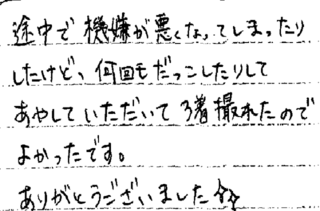 途中で機嫌が悪くなってしまったり
したけど、何回もだっこしたりして
あやしていただいて3着撮れたので
よかったです。
ありがとうございました☆☆